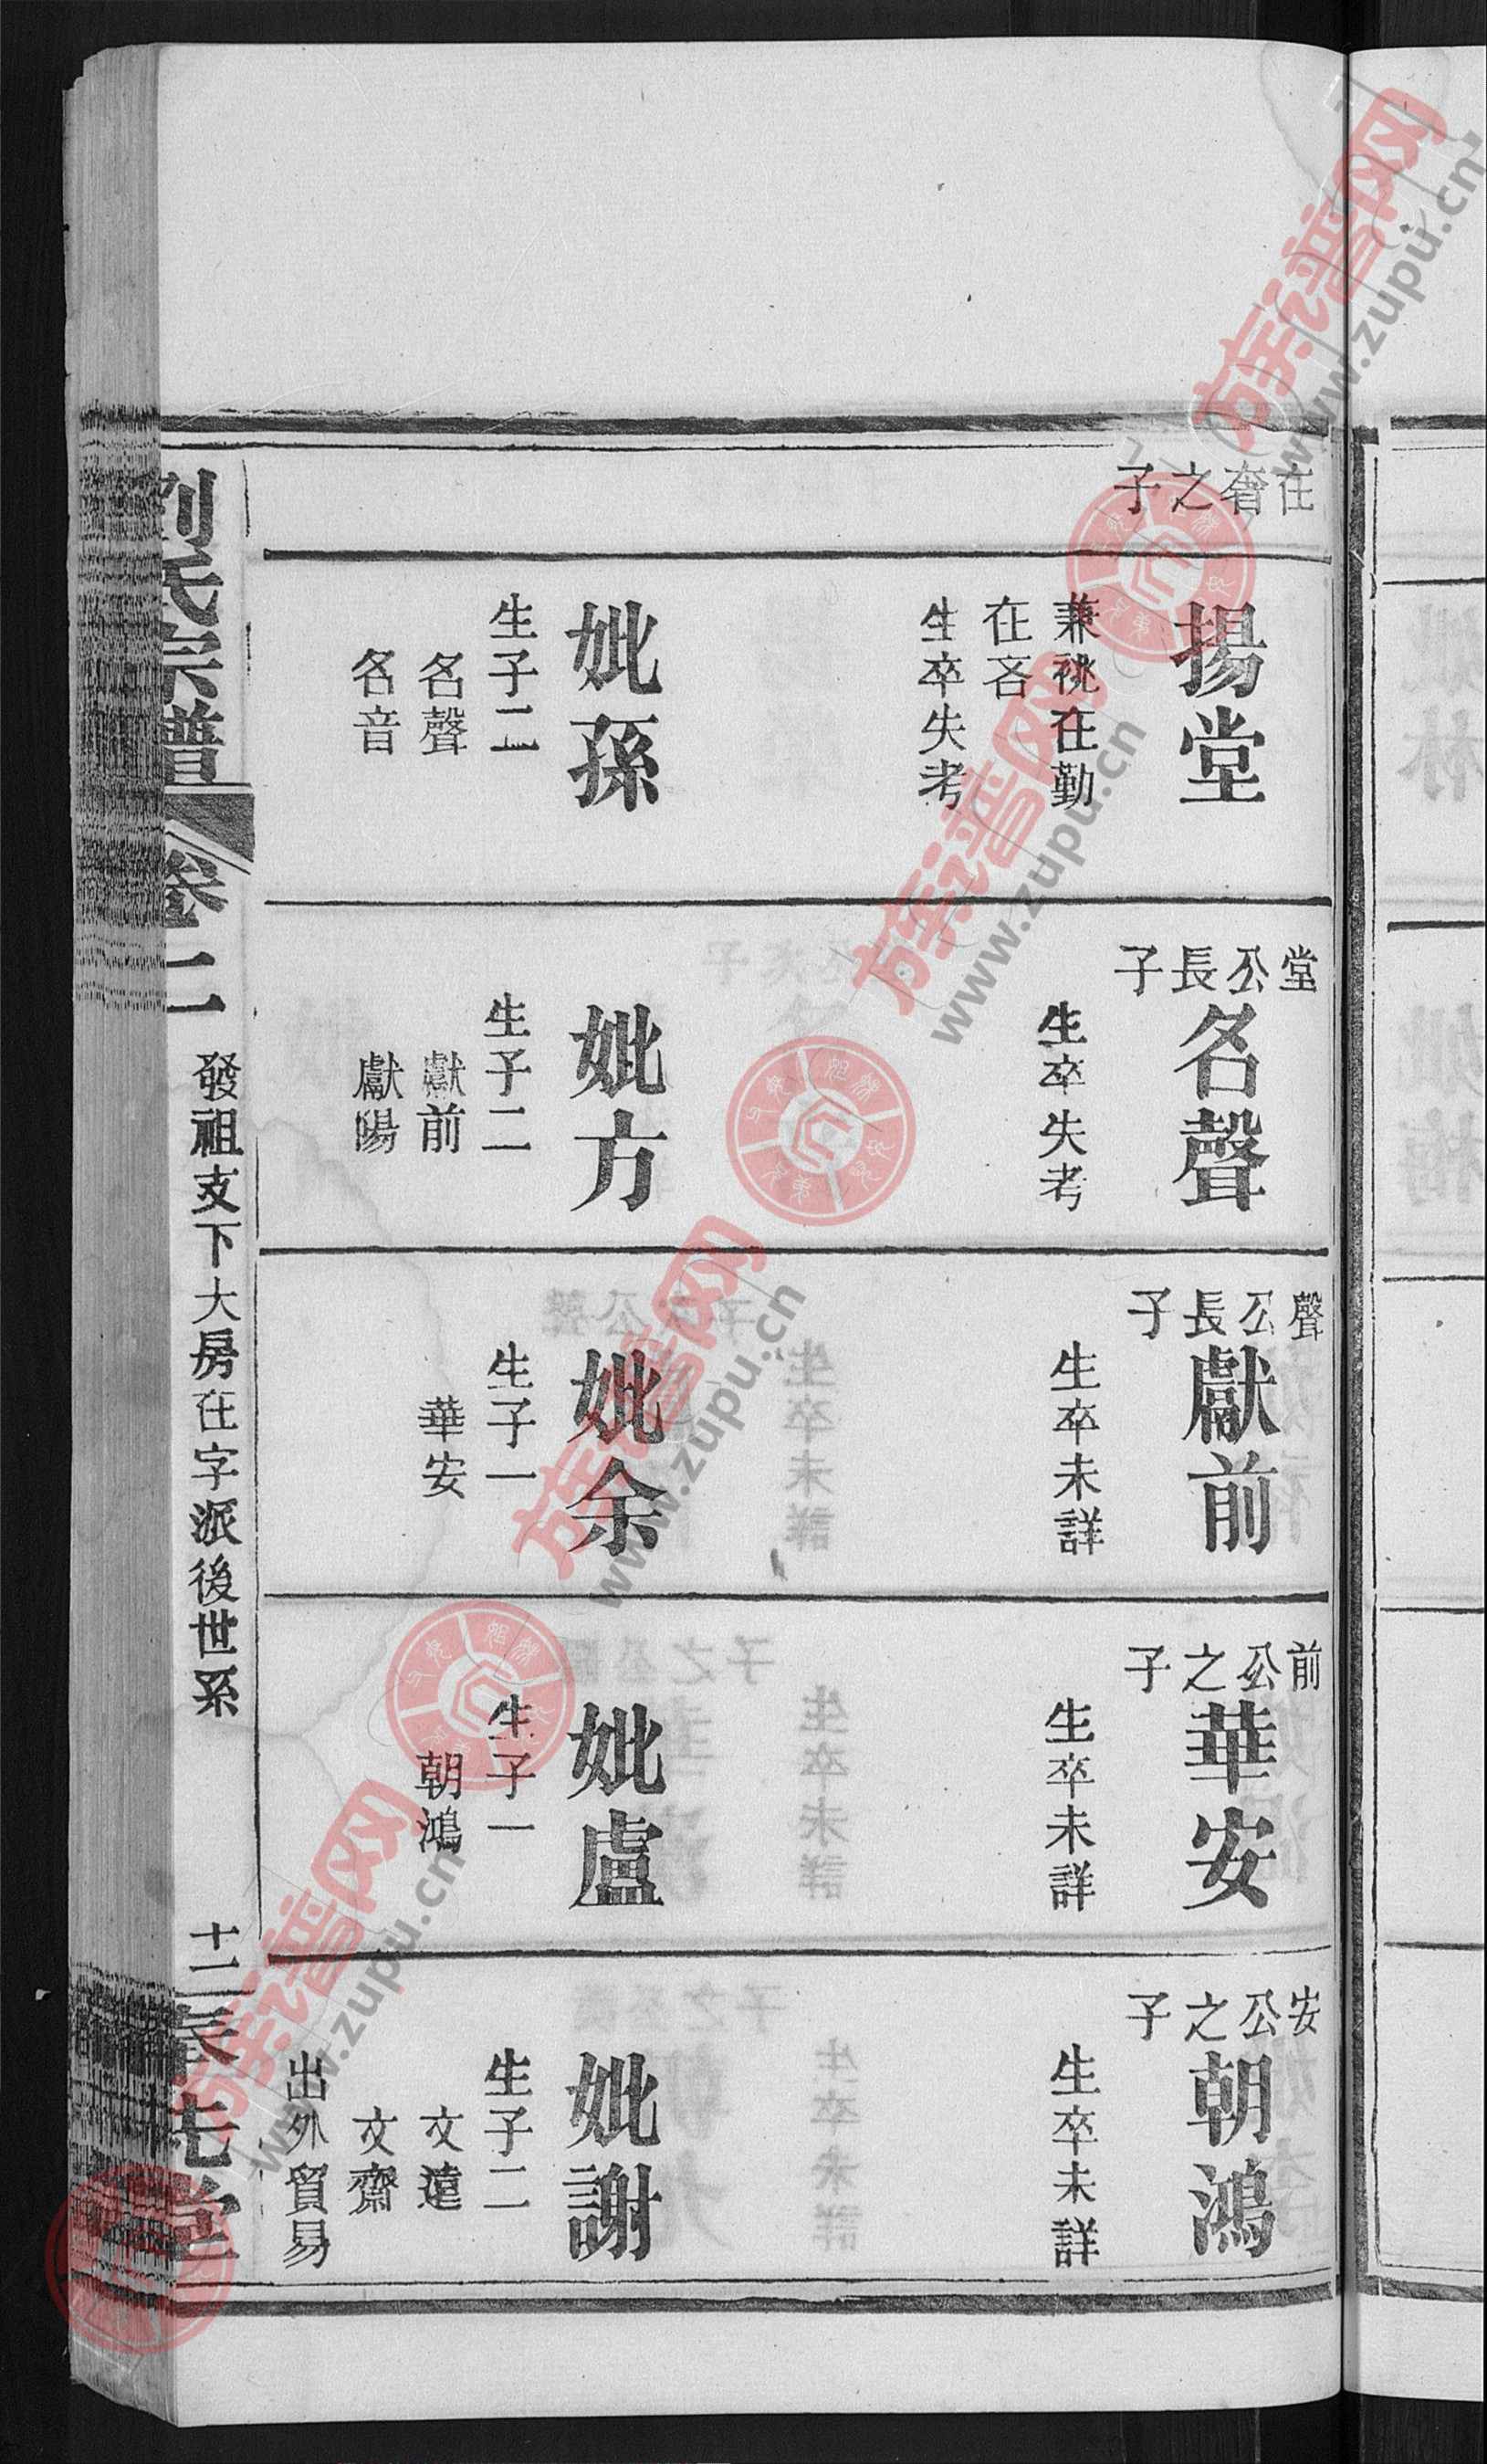 在奢之子
揚堂
兼祧在勤
在吝
生卒失考
妣孫
生子二
名聲
名音
堂公長子
名聲
生卒失考
妣方
生子二
獻前
獻陽
聲公長子
獻前
生卒未詳
妣余
生子一
華安
前公之子
華安
生卒未詳
妣盧
生子一
朝鴻
安公之子
朝鴻
生卒未詳
妣謝
生子二
文遠
文齋
出外貿易
劉氏宗譜
卷二
發祖支下大房在字派後世系
十二
堂
族谱网
www.zupu.cn
族谱网
www.zupu.cn
族谱网
www.zupu.cn
族谱网
www.zupu.cn